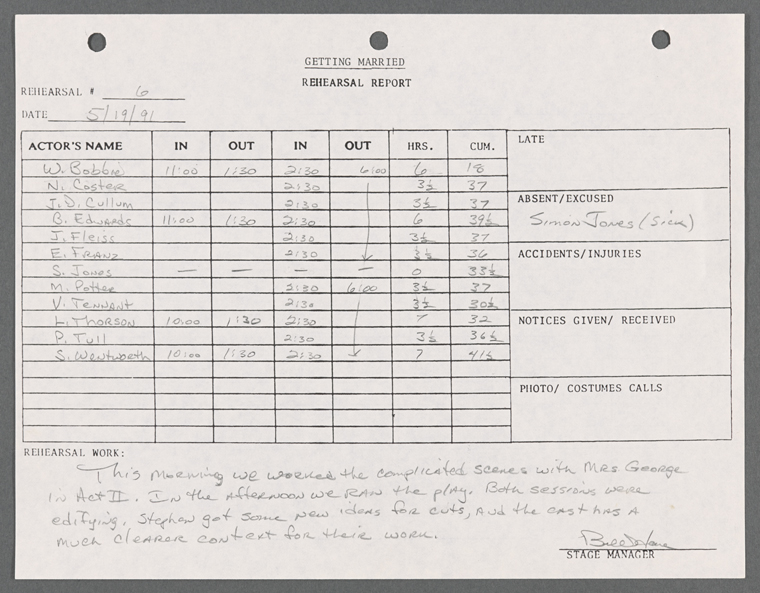 GETTING MARRIED
REHEARSAL REPORT
REHEARSAL # 6
DATE 5/19/91
ACTOR'S NAME IN OUT IN OUT HRS. CUM.
W. Bobbie 11:00 1:30 2:30 6:00 6 18
N. Coster 2:30 3½ 37
J.D. Cullum 2:30 3½ 37
B. Edwards 11:00 1:30 2:30 6 39½
J. Fleiss 2:30 3½ 37
E. Franz 2:30 3½ 36
S. Jones — — — — 0 33½
M. Potter 2:30 6:00 3½ 37
V. Tennant 2:30 3½ 30½
L. Thorson 10:00 1:30 2:30 7 32
P. Tull 2:30 3½ 36½
S. Wentworth 10:00 1:30 2:30 7 41½
LATE
ABSENT/EXCUSED
Simon Jones (sick)
ACCIDENTS/INJURIES
NOTICES GIVEN/ RECEIVED
PHOTO/ COSTUMES CALLS
REHEARSAL WORK:
This morning we worked the complicated scenes with Mrs George
in Act II. In the afternoon we ran the play. Both sessions were
edifying. Stephen got some new ideas for cuts, and the cast has a
much clearer context for their work.
STAGE MANAGER